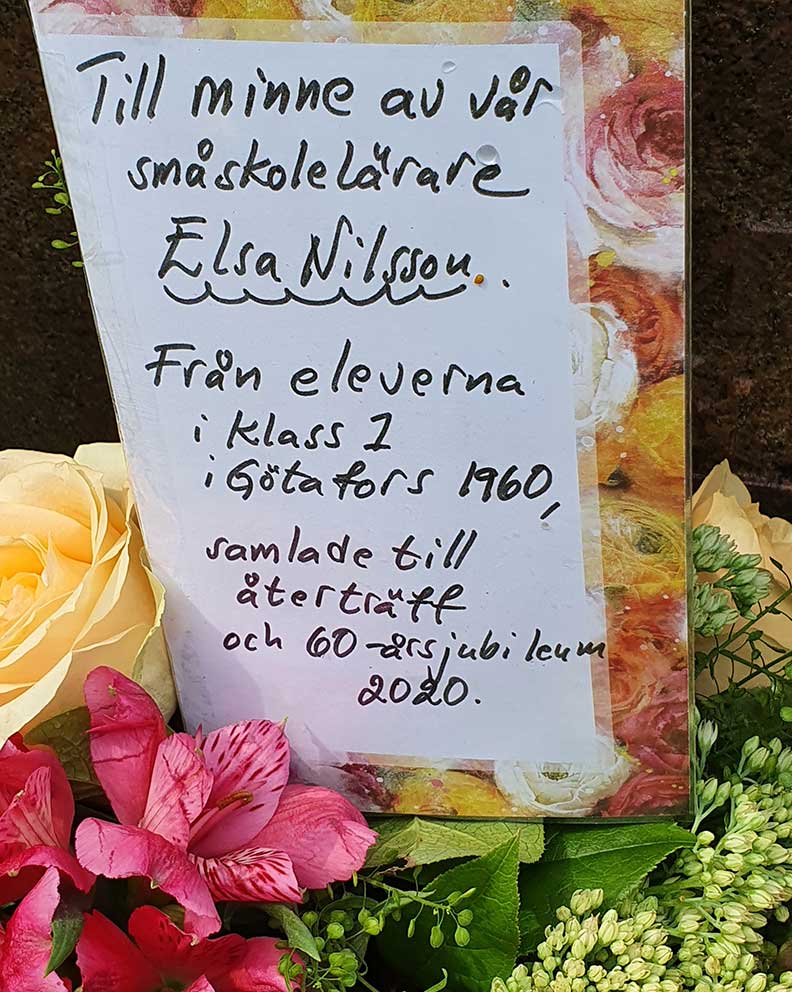 Till minne av vår
småskolelärare
Elsa Nilsson..
Från eleverna
i klass 1
i Götafors 1960,
samlade till
återträff
och 60-årsjubileum
2020.